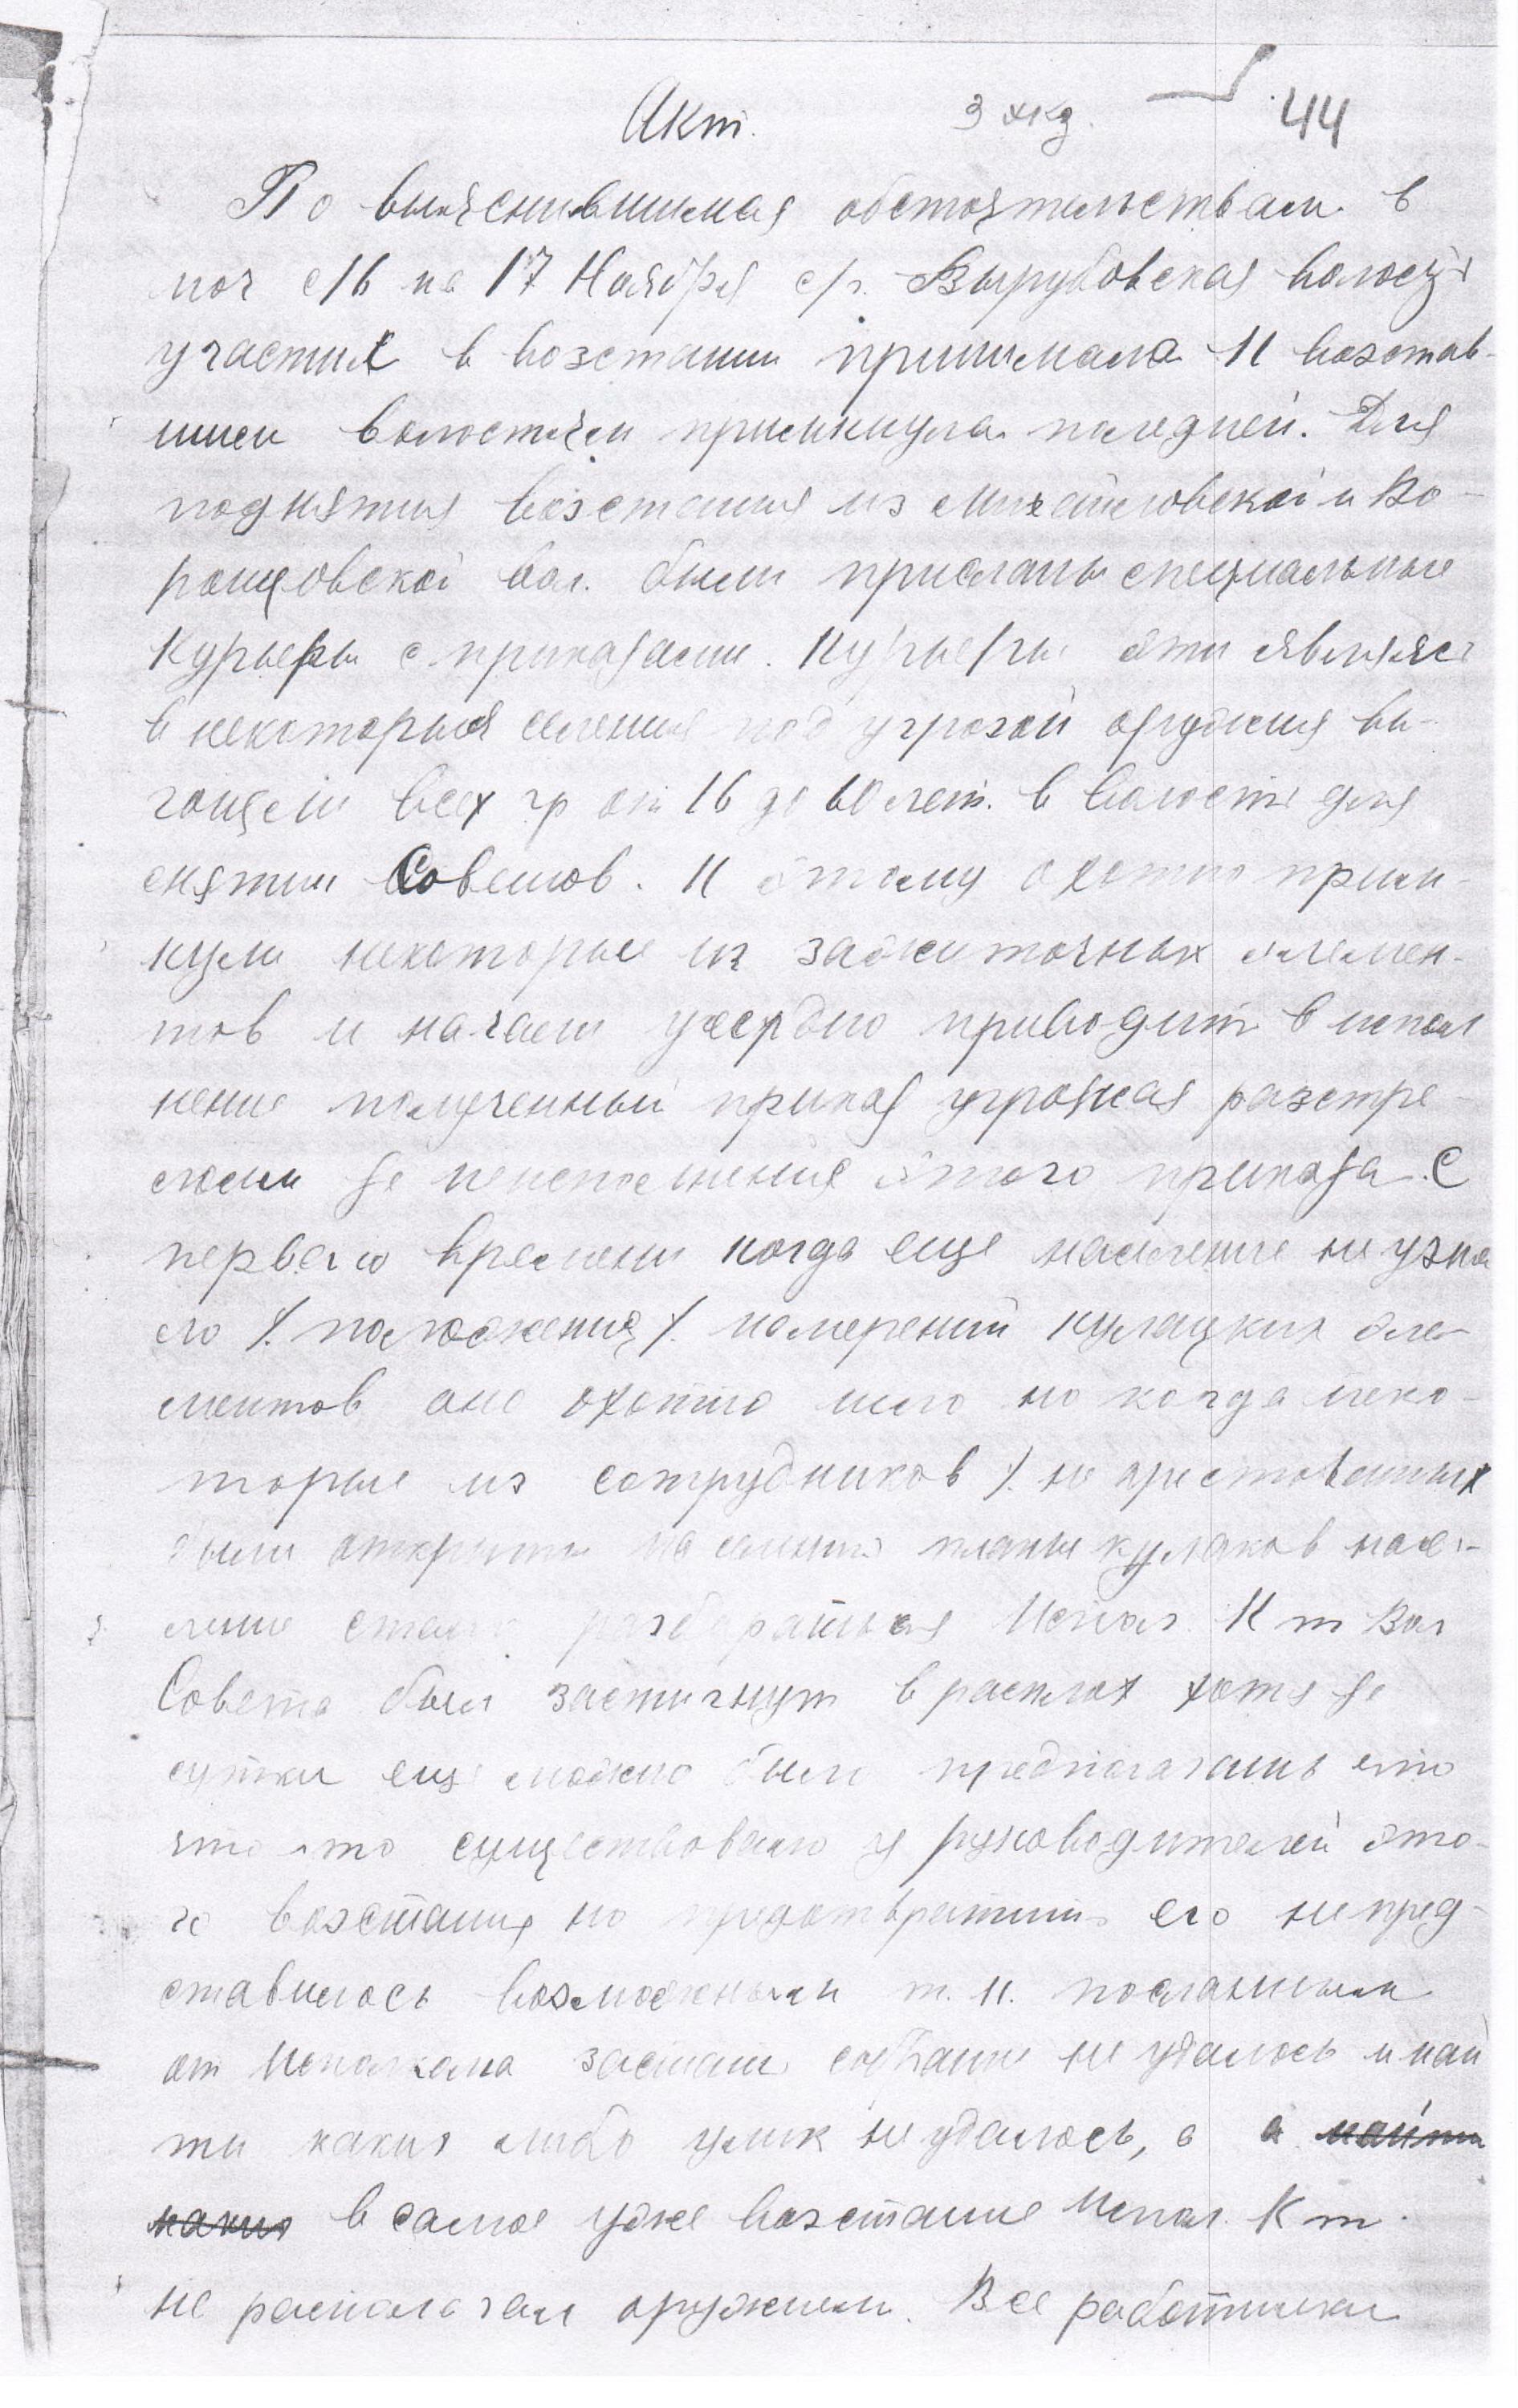 Акт. 3 экз. 44
По выяснившимся обстоятельствам в
ноч с 16 на 17 Ноября с/г. Вырубовская волость
участия в возстании принимала К возстав-
шим волостям примкнула последней. Для
поднятия возстания из Михайловской и Во-
рощовской вол. были присланы специальные
Курьеры с приказами. Курьеры эти являясь
в некоторыя селения под угрозой орудия вы-
гоняли всех гр от 16 до 60 лет. в волость для
снятия Советов. К этому охотно прим-
кнули некоторые из зажиточных элемен-
тов и начали усердно приводить в испол
нение полученный приказ угрожая разстре-
лом за неисполнение этого приказа. С
первого времени когда еще население не узна
ло /. положения/. намерений кулацких эле-
ментов оно охотно шло но когда неко-
торые из сотрудников /. не арестованных
были открыты планы кулаков насе-
ление стало разбираться Испол. К-т Вол
Совета был застигнут в расплох хотя за
сутки еще можно было предполагать что
что-то существовало у руководителей это-
го возстания но предотвратить его не пред-
ставилось возможным т. к. посланным
от Исполкома застать собрание не удалось и най
ти каких либо улик не удалось, а а найти
каких в самое уже возстание Испол. К-т.
не располагал оружием. Все работники